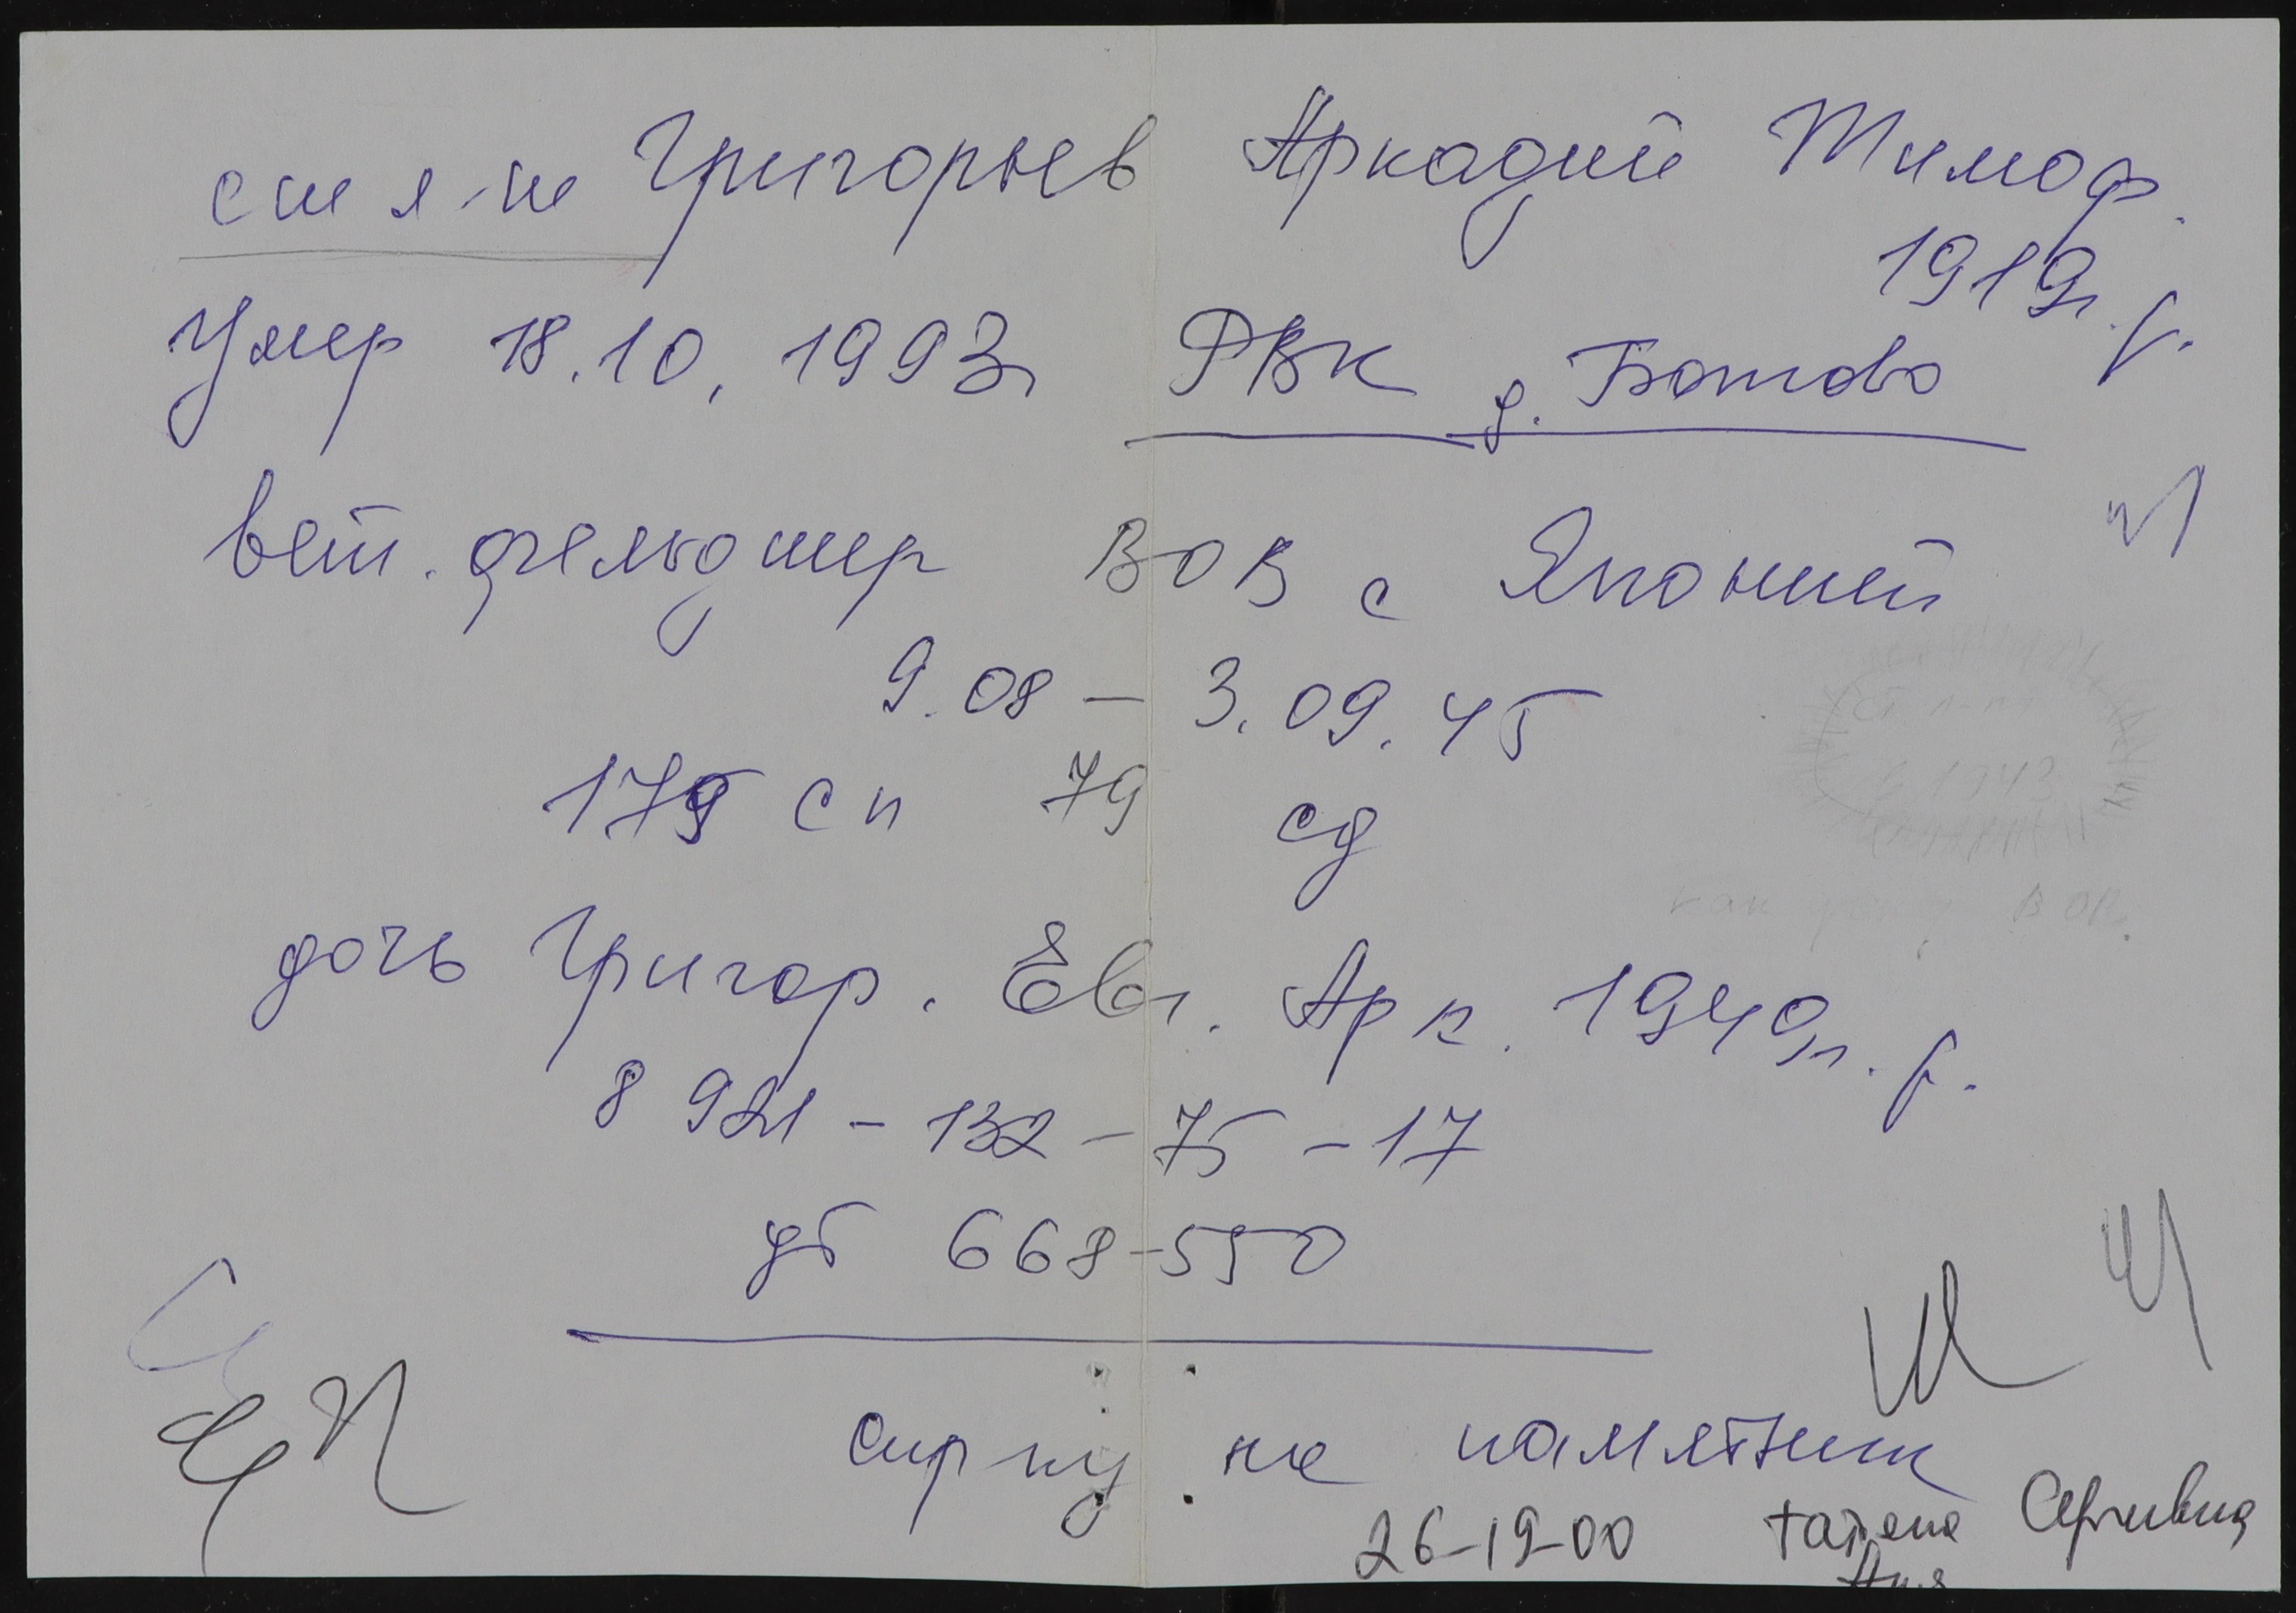 ст л-т Григорьев Аркадий Тимоф.
1919 г. р.
Умер 18.10.1993 г РВК д. Ботово
вет. фельдшер ВОВ с Японией
9.08 - 3.09.45
179 сп 79 сд
дочь Григор. Евг. Арк. 1949 г. р.
8 921 - 132 - 75 - 17
уб 668-550
спрку на памятник
26-19-00 татьяна Сергеевна